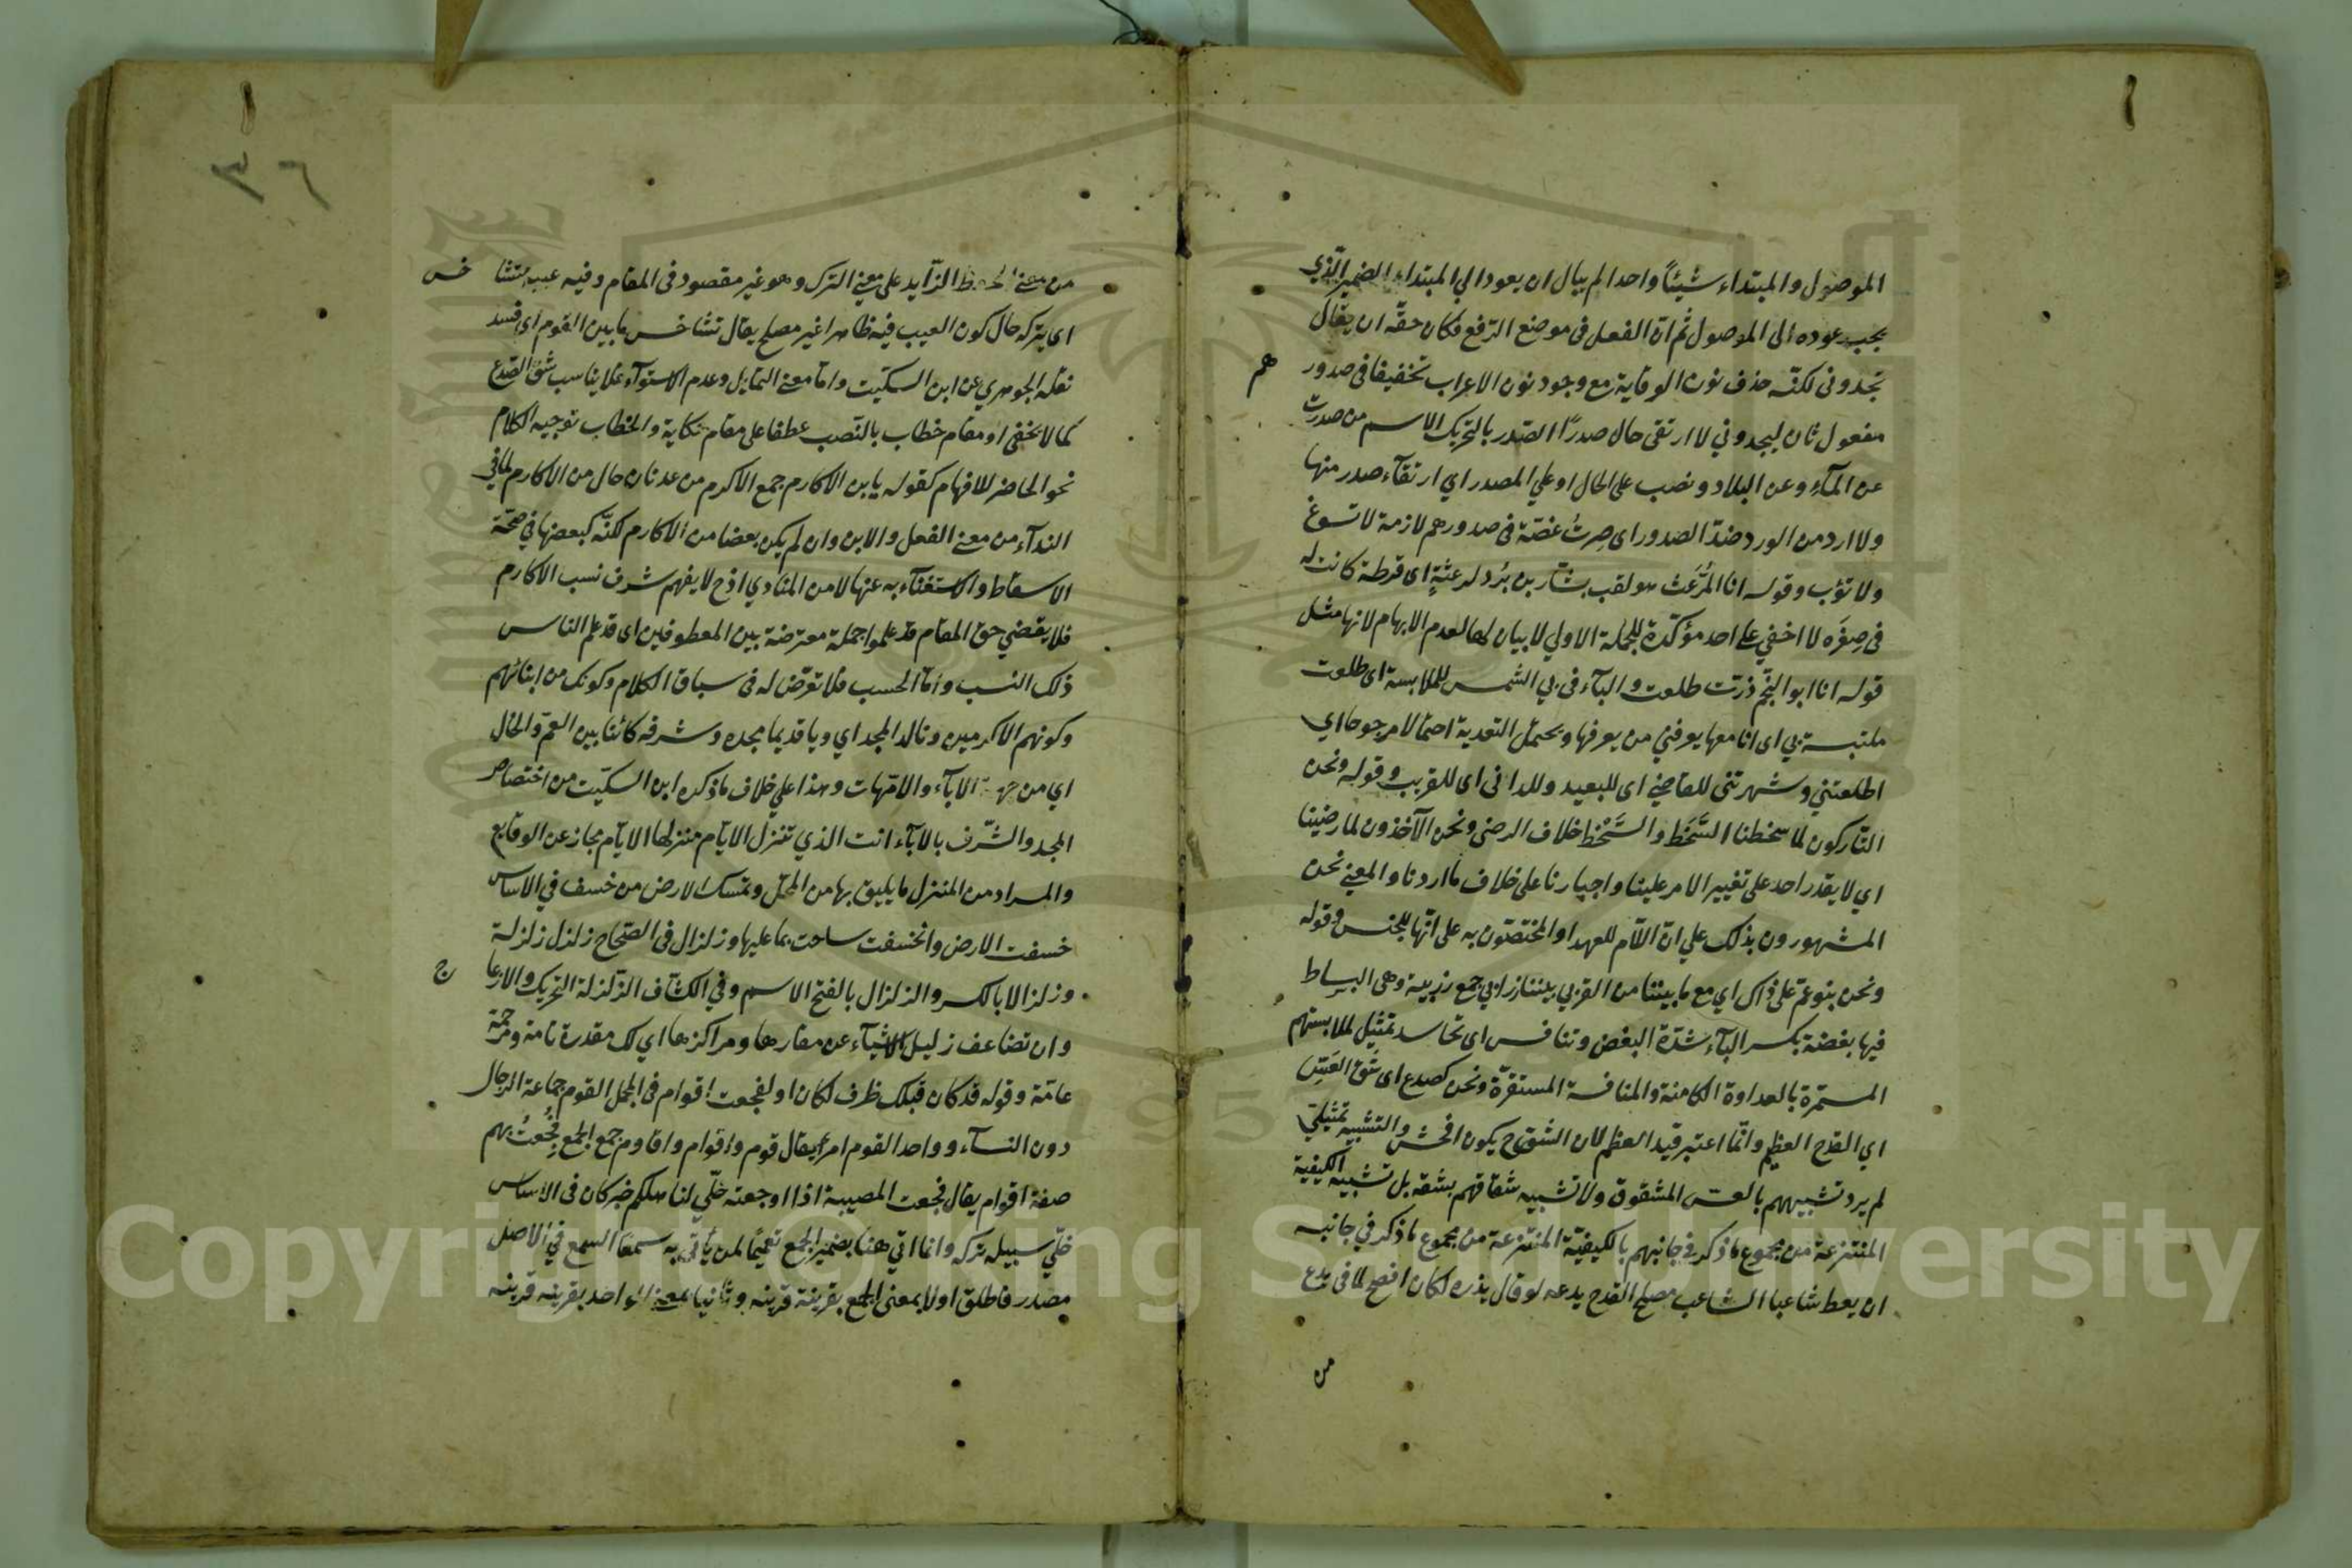 الموصول والمبتداء شيئاً واحدا لم يبال ان يعود الي المبتداء الضمير الّذي
يجب عوده الى الموصول ثُم انّ الفعل فى موضع الرّفع فكان حقّه ان يقال
يجدونى لكنّه حذف نون الوقاية مع وجود نون الاعراب تخفيفا فى صدور
هم
مفعول ثان ليجدوني لا ارتقى حال صدرًا الصّدر بالتحريك الاسم من صدرت
عن المآءِ وعن البلاد ونصب على الحال او علي المصدر اي ارتقآء صدر منها
ولا ارد من الورد ضدّ الصدور اى صِرتُ غصّة فى صدورهم لازمة لا تسوغ
ولا تؤب وقوله انا المُرَّعَث هو لقب بشّار بن بُرد لرعثةٍ اى قرطة كانت له
فى صِغَرَه لا اخفي على احد مؤكّدة للجملة الاولي لا بيان لها لعدم الابهام لانها مثل
قوله انا ابو النّجم ذرّت طلعت والبآء فى بي الشمس للملابسة اى طلعت
ملتبسة بي اى انا معها يعرفني من يعرفها ويحتمل التعدية احتمالا مرجوحا اي
اطلعتني وشهرتنى للقاضي اى للبعيد وللدانى اى للقريب وقوله ونحن
التّاركون لما سخطنا السَّخَط والسُّخْط خلاف الرضى ونحن الآخذون لما رضينا
اي لا يقدر احد على تغيير الامر علينا واجبارنا على خلاف ما اردنا والمعني نحن
المشهورون بذلك علي انّ اللّام للعهد او المختصّون به على انّها للجنس وقوله
ونحن بنو عمّ على ذاك اي مع ما بيننا من القربي بيننا زرابي جمع زربية وهى البساط
فيها بغضة بكسر البآء شدّة البغض وتنافس اى تحاسد تمثيل لملابستهم
المستمرّة بالعداوة الكامنة والمنافسة المستقرّة ونحن كصدع اى شَقّ العَسّ
اي القدح العظيم وانّما اعتبر قيد العظم لان الشّق ح يكون افحش والتشبيه تمثيلىّ
لم يرد تشبيههم بالعسّ المشقوق ولا تشبيه شقاقهم بشقه بل تشبيه الكيفية
المنتزعة من مجموع ما ذكر فى جانبهم بالكيفيّة المنتزعة من مجموع ما ذكر في جانبه
ان يعط شاعبا الشاعب مصلح القدح يدعه لو قال يذره لكان افصح لما فى يدع
من
٣٦
من معني الزّايد على معني الترك وهو غير مقصود فى المقام وفيه عيبه متشا
خس
اى يتركه حال كون العيب فيه ظاهرا غير مصلح يقال تشاخس ما بين القوم اى فسد
نقله الجوهري عن ابن السكّيت وامّا معني التمايل وعدم الاستوآء فلا يناسب شقّ الصّدع
كما لا يخفى او مقام خطاب بالنّصب عطفا على مقام حكاية والخطاب توجيه الكلام
نحو الحاضر للافهام كقوله يا بن الاكارم جمع الاكرم من عدنان حال من الاكارم لما في
الندآء من معني الفعل والابن وان لم يكن بعضا من الاكارم لكنّه كبعضها في صحّة
الاسقاط والاستغنآء به عنها لا من المنادي اذ ح لا يفهم شرف نسب الاكارم
فلا يقضي حقّ المقام قد علموا جملة معترضة بين المعطوفين اى قد علم الناس
ذلك النسب وامّا الحسب فلا تعرّض له فى سياق الكلام وكونك من ابنائهم
وكونهم الاكرمين وتالد المجد اي ويا قديما مجده وشرفه كائنا بين العمّ والخال
اي من جهة الآبآء والامّهات وهذا علي خلاف ما ذكره ابن السكّيت من اختصاص
المجد والشّرف بالابآء انت الذي تنزل الايّام منزلها الايّام مجاز عن الوقايع
والمراد من المنزل ما يليق بها من المحلّ وتمسك الارض من خسف في الاساس
خسفت الارض وانخسفت ساخت بما عليها وزلزال فى الصّحاح زلزل زلزلة
وزلزالا بالكسر والزلزال بالفتح الاسم وفي الكشّاف الزّلزلة التحريك والازعا
ج
وان تضاعف زليل الاشيآء عن مقارها ومراكزها اي لك مقدرة تامة ومرحمة
عامّة وقوله قد كان قبلك ظرف لكان او لفجعت اقوام فى المجمل القوم جماعة الرجال
دون النسآء وواحد القوم امرأ يقال قوم واقوام واقاوم جمع الجمع فُجِعتُ بهم
صفة اقوام يقال فجعت المصيبة اذا اوجعته خلّي لنا هلكهم خبر كان فى الاساس
خلّي سبيله تركه وانما اتي هنا بضمير الجمع تعميمًا لمن يأتّى به سمعًا السمع في الاصل
مصدر فاطلق اولا بمعنى الجمع بقرينة قرينه وثانيا بمعني الواحد بقرينه قرينه
Copyright © King Saud University